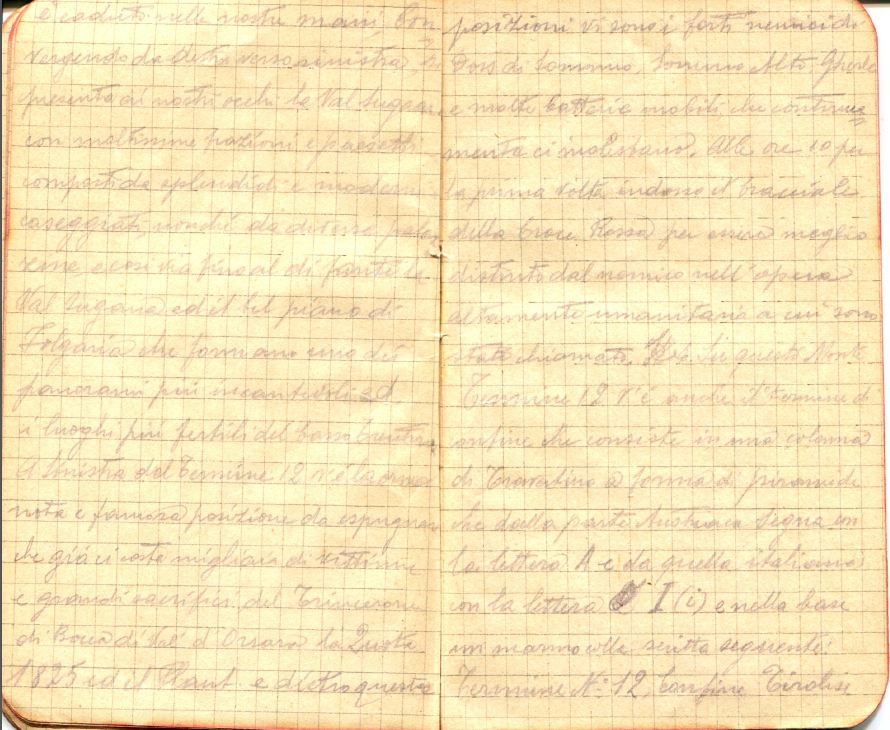 è caduto nelle nostre mani, Con-
vergendo da destra verso sinistra, si
presenta ai nostri occhi la Val Sugana
con moltissime frazioni e paesetti
composti da splendidi e moderni
caseggiati, nonché da diverse palaz
zine, e così via fino al di fronte la
Val Sugana ed il bel piano di
Folgaria che formano uno dei
panorami più incantevoli ed
i luoghi più fertili del basso Trentino
A sinistra del Termine 12 v'è la ormai
nota e famosa posizione da espugnare
che già ci costa migliaia di vittime
e grandi sacrifici del Trincerone
di Bocca di Val d'Orsara la Quota
1825 ed il Plaut e dietro queste
posizioni vi sono i forti nemici di
Doss di Sommo, Sommo Alto, Gherle
e molte batterie mobili che continua
mente ci molestano. Alle ore 10 per
la prima volta indosso il bracciale
della Croce Rossa per essere meglio
distinto dal nemico nell'opera
altamente umanitaria a cui sono
stato chiamato. Su questo Monte
Termine 12 v'è anche il termine di
confine che consiste in una colonna
di Travertino a forma di piramide
che dalla parte Austriaca segna con
la lettera A e da quella italiana
con la lettera I (i) e nella base
un marmo colla scritta seguente:
Termine N.° 12, Confine Tirolese